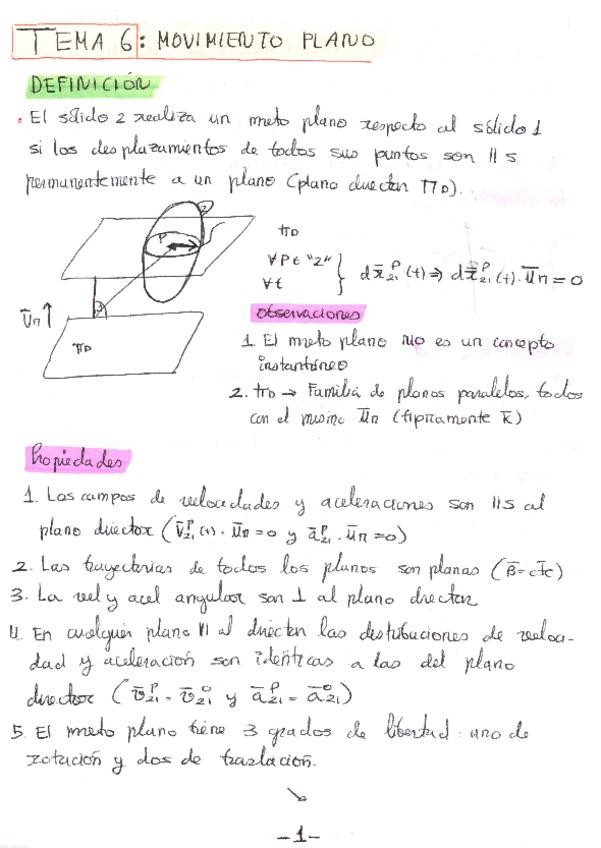 TEMA 6: MOVIMIENTO PLANO
DEFINICIÓN
. El sólido 2 realiza un mvto plano respecto al sólido 1
si los desplazamientos de todos sus puntos son || s
permanentemente a un plano (plano director ΠD).
2
P
πD
∀P ∈ "2"
∀t
} dx̄ᴾ₂₁(t) ⇒ dx̄ᴾ₂₁(t) · ūn = 0
ūn ↑
πD
Observaciones
1. El mvto plano NO es un concepto
instantáneo
2. πD → Familia de planos paralelos, todos
con el mismo ūn (tipicamente k̄)
Propiedades
1. Los campos de velocidades y aceleraciones son ||s al
plano director (v̄ᴾ₂₁(t) · ūn = 0 y āᴾ₂₁ · ūn = 0)
2. Las trayectorias de todos los planos son planas (B̄ = cte)
3. La vel y acel angular son ⊥ al plano director
4. En cualquier plano || al director las distribuciones de veloci-
dad y aceleración son idénticas a las del plano
director (v̄ᴾ₂₁ = v̄ᴼ₂₁ y āᴾ₂₁ = āᴼ₂₁)
5. El mvto plano tiene 3 grados de libertad: uno de
rotación y dos de traslación.
-1-